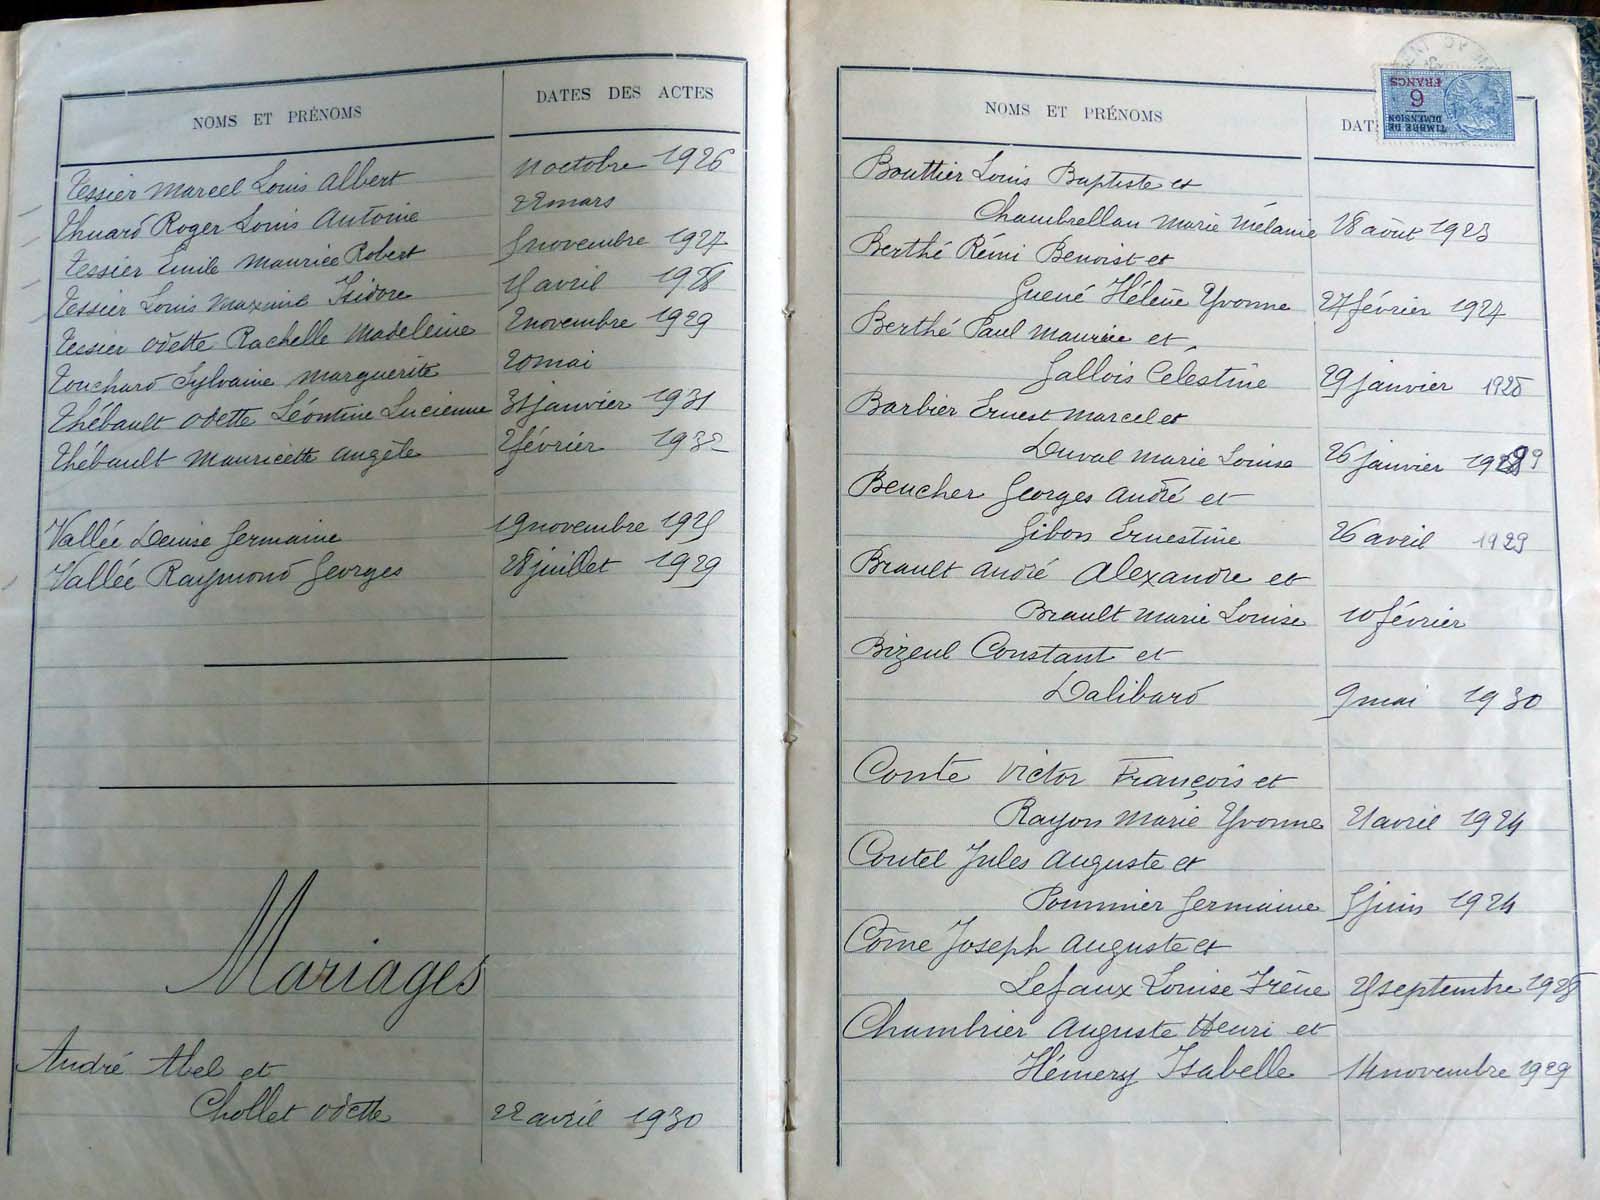 NOMS ET PRÉNOMS DATES DES ACTES
Tessier Marcel Louis Albert octobre 1926
Thuard Roger Louis Antoine 22 mars
Tessier Emile Maurice Robert 5 novembre 1927
Tessier Louis Maxime Isidore avril 1928
Tessier Odette Rachelle Madeleine 2 novembre 1929
Touchard Sylvaine Marguerite 20 mai
Thébault Odette Léontine Lucienne 31 janvier 1931
Thébault Mauricette Angèle 2 février 1932
Vallée Denise Germaine 19 novembre 1925
Vallée Raymond Georges 28 juillet 1929
Mariages
André Abel et
Chollet Odette 22 avril 1930
NOMS ET PRÉNOMS DAT
TIMBRE DE
DIMENSION
6
FRANCS
Bouttier Louis Baptiste et
Chambrellan Marie Mélanie 18 août 1923
Berthé Rémi Benoist et
Guené Hélène Yvonne 27 février 1927
Berthé Paul Maurice et
Gallois Celestine 29 janvier 1928
Barbier Ernest Marcel et
Duval Marie Louise 26 janvier 1929
Beucher Georges André et
Gibon Ernestine 26 avril 1929
Brault André Alexandre et
Brault Marie Louise 10 février
Bizeul Constant et
Dalibard 9 mai 1930
Conte Victor François et
Rayon Marie Yvonne 21 avril 1924
Coutel Jules Auguste et
Pommier Germaine 5 juin 1924
Côme Joseph Auguste et
Lefaux Louise Irène 25 septembre 1928
Chambrier Auguste Henri et
Hémery Isabelle 14 novembre 1929